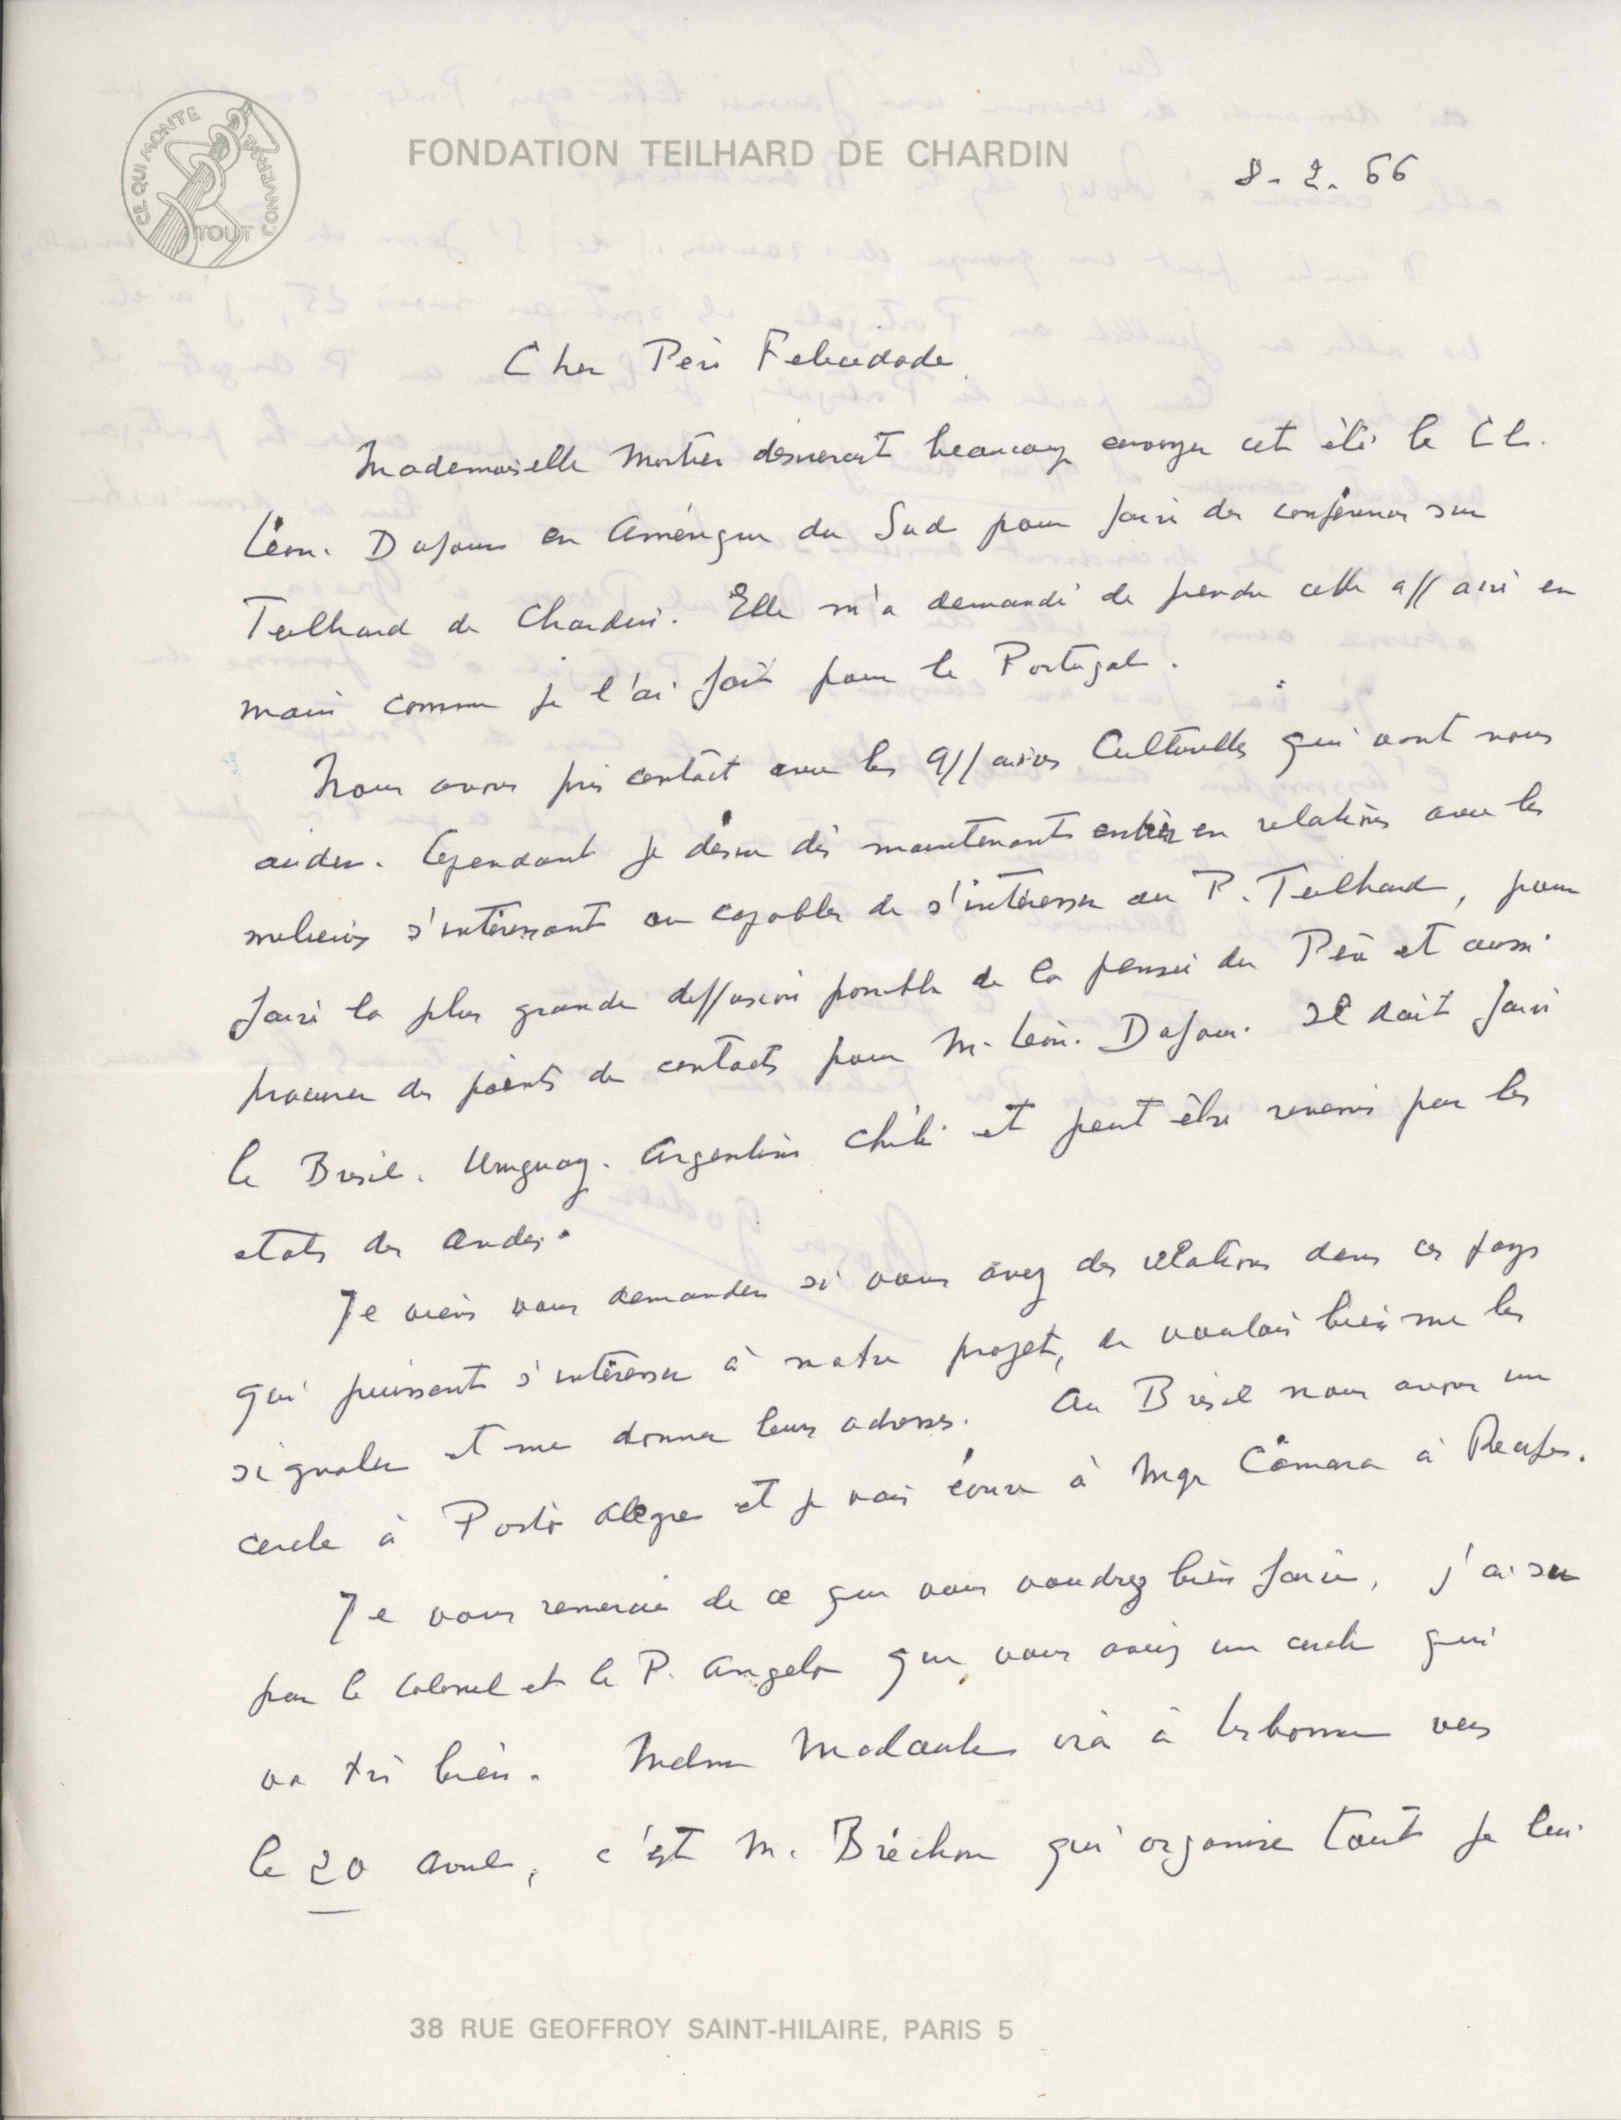 CE QUI MONTE CONVERGE
TOUT
FONDATION TEILHARD DE CHARDIN
8-2.66
Cher Père Felicidade
Mademoiselle Mortier désirerait beaucoup envoyer cet été le Ct.
Léon. Dufour en Amérique du Sud pour faire des conférences sur
Teilhard de Chardin. Elle m'a demandé de prendre cette affaire en
main comme je l'ai fait pour le Portugal.
Nous avons pris contact avec les Affaires Culturelles qui vont nous
aider. Cependant je désire dès maintenant entrer en relations avec les
milieux s'intéressant ou capables de s'intéresser au P. Teilhard, pour
faire la plus grande diffusion possible de la pensée du Père et aussi
procurer des points de contacts pour M. Léon. Dufour. Il doit faire
le Brésil. Uruguay. Argentine Chili et peut être revenir par les
états des Andes.
Je viens vous demander si vous avez des relations dans ces pays
qui puissent s'intéresser à notre projet, de vouloir bien me les
signaler et me donner leurs adresses. Au Brésil nous avons un
cercle à Porto Alegre et je vais écrire à Mgr Câmara à Recife.
Je vous remercie de ce que vous voudrez bien faire, j'ai su
par le Colonel et le P. Angelo que vous aviez un cercle qui
va très bien. Mdme Madaule ira à Lisbonne vers
le 20 avril, c'est M. Bréchon qui organise tout je lui
38 RUE GEOFFROY SAINT-HILAIRE, PARIS 5